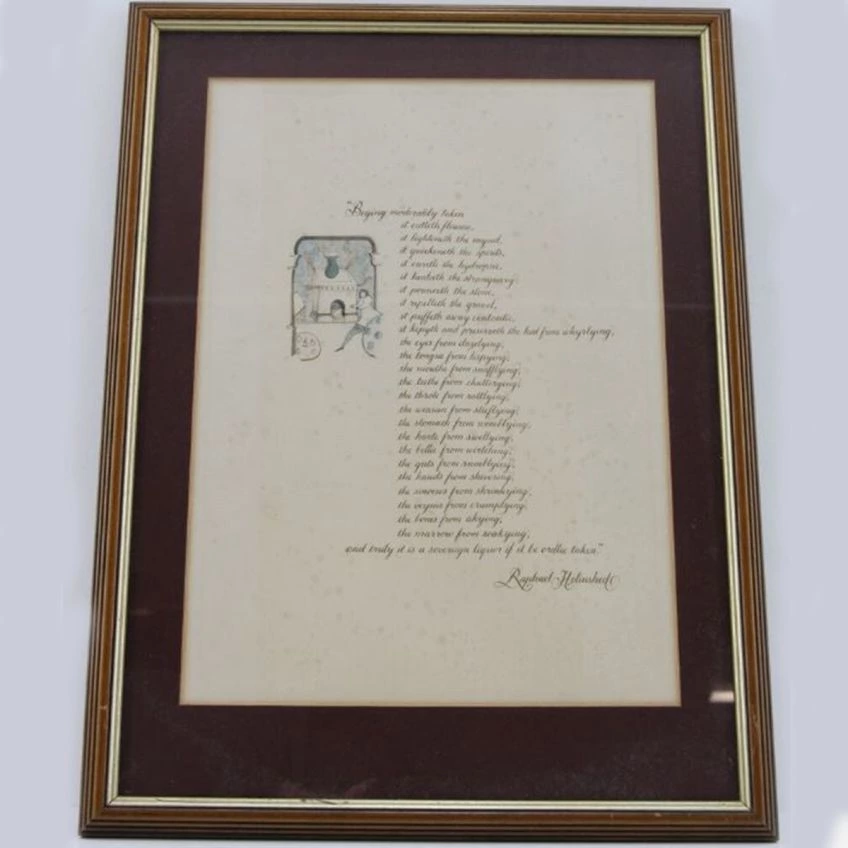 "Beying moderably taken
it cutteth fleume,
it lighteneth the mynd,
it quickeneth the spirits,
it cureth the hydropsie,
it healeth the strangurie,
it pounceth the stone,
it repelleth the gravel,
it puffeth away ventositie,
it kepyth and preserveth the hed from whyrlyng,
the eyes from dazelyng,
the tongue from lispyng,
the mouthe from snafflyng,
the teethe from chatteryng,
the throte from rattlyng,
the weasan from stieflyng,
the stomach from womblyng,
the harte from swellyng,
the bellie from wirtching,
the guts from rumblyng,
the hands from shivering,
the sinowes from shrinkyng,
the veynes from crumplyng,
the bones from akyng,
the marrow from soakyng,
and truly it is a sovereign liquor if it be orderlie taken."
Raphael Holinshed